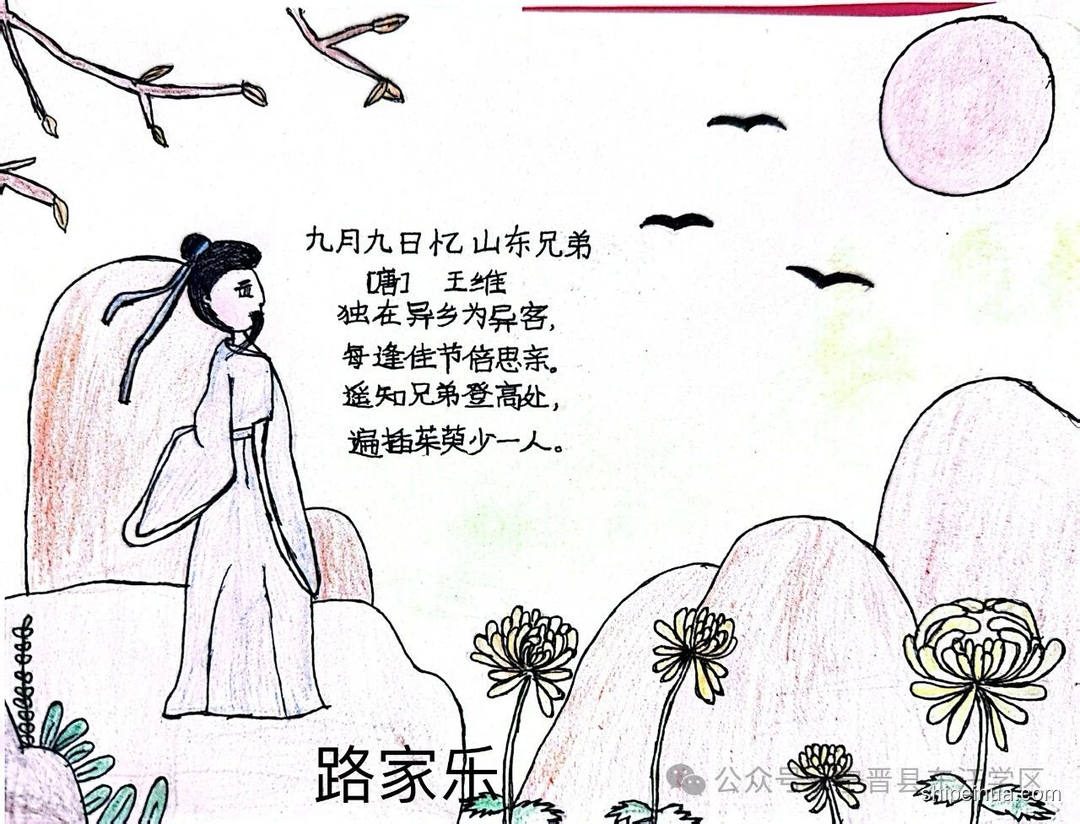 九月九日忆山东兄弟
[唐] 王维
独在异乡为异客,
每逢佳节倍思亲。
遥知兄弟登高处,
遍插茱萸少一人。
路家乐
公众号 晋县东汪学区
shipeihua.com